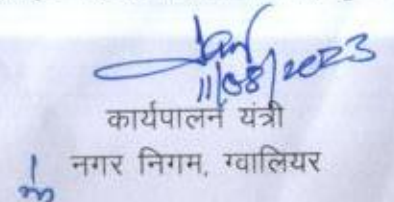 11/08/2023
कार्यपालन यंत्री
नगर निगम, ग्वालियर